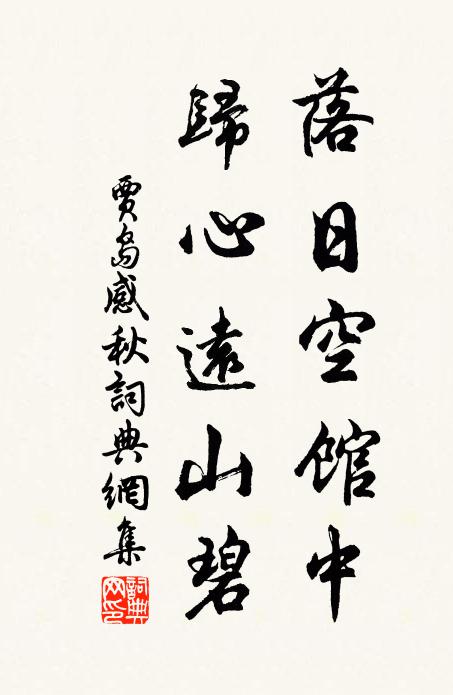 落日空館中
歸心遠山碧
賈島感秋詞典網集
詞典網印